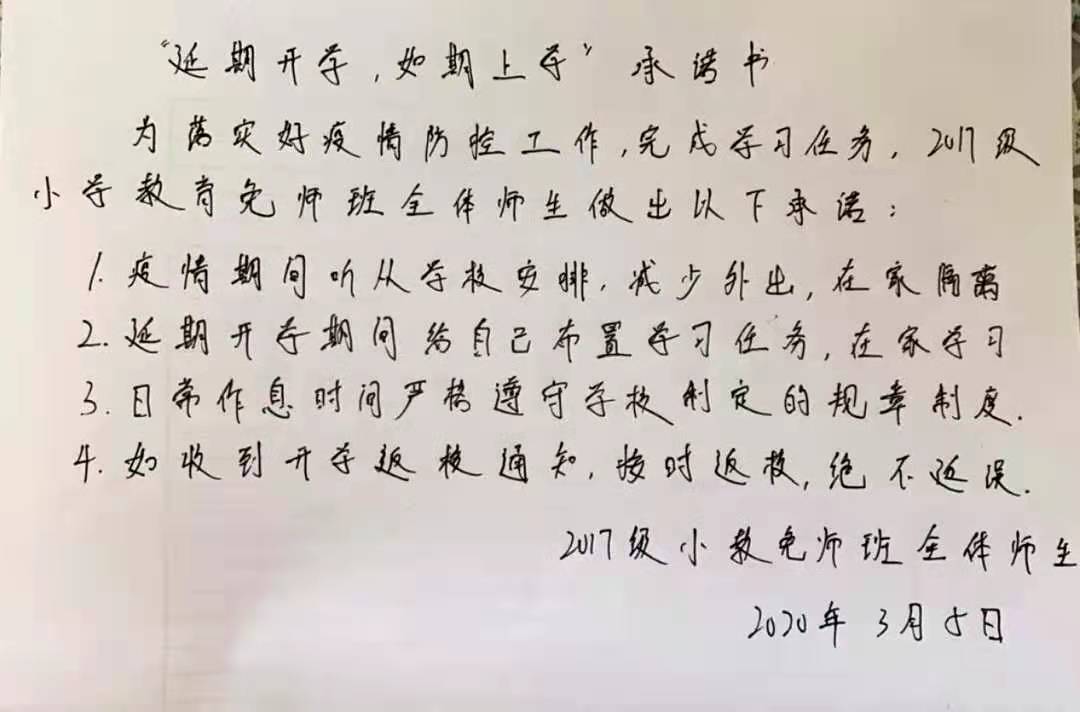 “延期开学,如期上学”承诺书
为落实好疫情防控工作,完成学习任务,2017级
小学教育免师班全体师生做出以下承诺:
1.疫情期间听从学校安排,减少外出,在家隔离
2.延期开学期间给自己布置学习任务,在家学习
3.日常作息时间严格遵守学校制定的规章制度.
4.如收到开学返校通知,按时返校,绝不延误.
2017级小教免师班全体师生
2020年3月5日